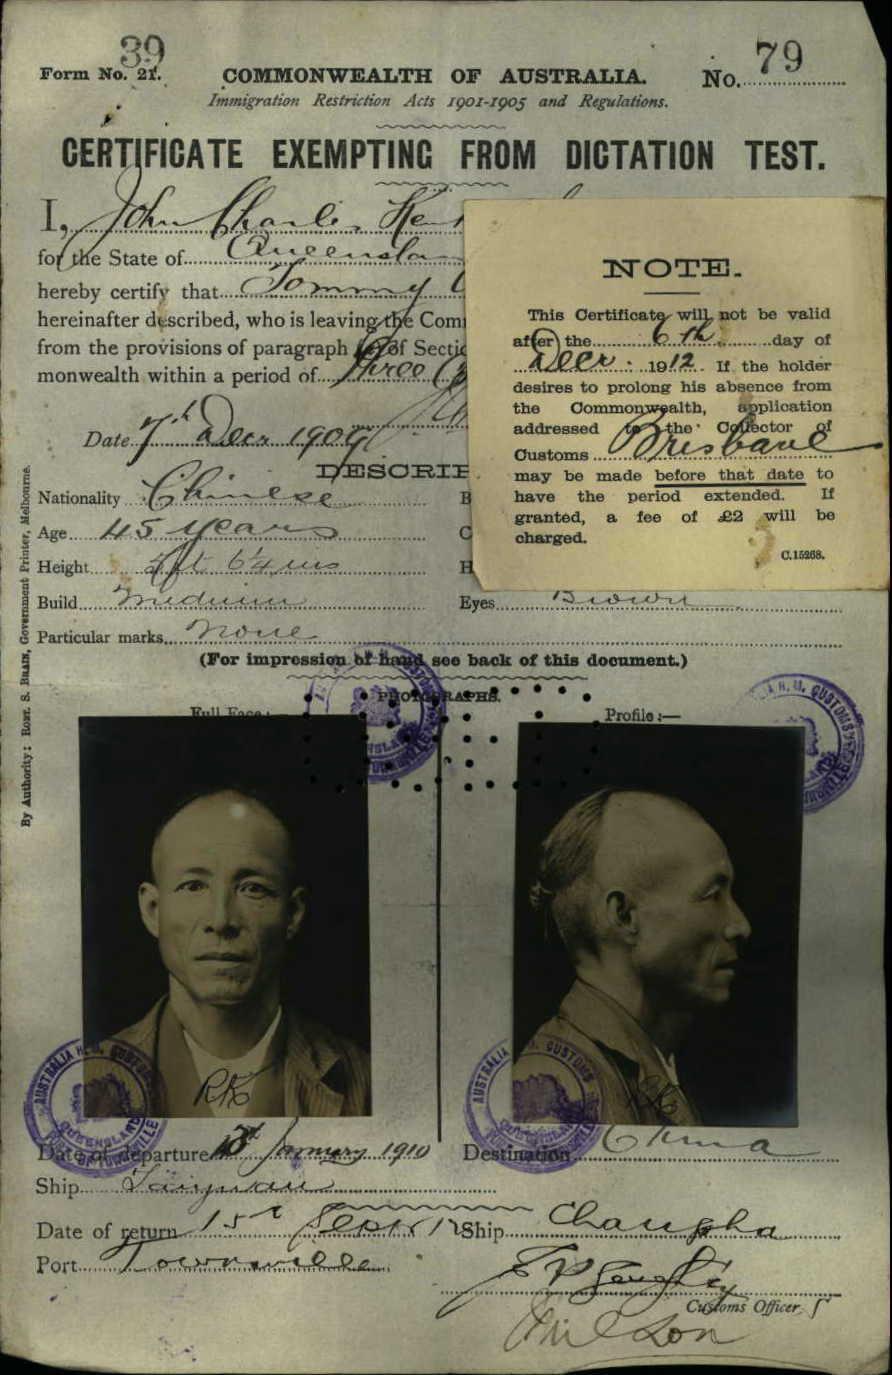 39
Form No. 21.
COMMONWEALTH OF AUSTRALIA.
No. 79
Immigration Restriction Acts 1901-1905 and Regulations.
CERTIFICATE EXEMPTING FROM DICTATION TEST.
I, John Charles Ken
for the State of Queenslan
hereby certify that Tommy
hereinafter described, who is leaving the Com
from the provisions of paragraph of Sectio
monwealth within a period of Three
Date 7th Decr 1909
NOTE.
This Certificate will not be valid
after the 6th day of
Decr. 1912. If the holder
desires to prolong his absence from
the Commonwealth, application
addressed to the Collector of
Customs Brisbane
may be made before that date to
have the period extended. If
granted, a fee of £2 will be
charged.
C.15268.
DESCRIP
Nationality Chinese
B
Age 45 years
C
Height 5ft 6¼ ins
H
Build Medium
Eyes Brown
Particular marks None
(For impression of hand see back of this document.)
PHOTOGRAPHS.
Full Face:
Profile:—
By Authority: ROBT. S. BRAIN, Government Printer, Melbourne.
AUSTRALIA H.M. CUSTOMS
QUEENSLAND
PORT OF TOWNSVILLE
RK
RK
Date of departure January 1910
Destination China
Ship Taiyuan
Date of return 15th Septr 12
Ship Changsha
Port Townsville
Customs Officer.